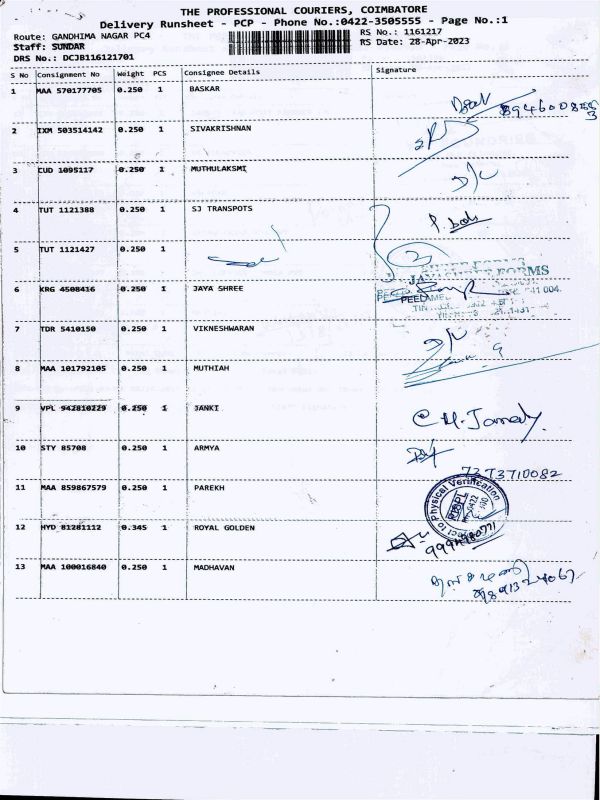 THE PROFESSIONAL COURIERS, COIMBATORE
Delivery Runsheet - PCP - Phone No.:0422-3505555 - Page No.:1
Route: GANDHIMA NAGAR PC4 RS No.: 1161217
Staff: SUNDAR RS Date: 28-Apr-2023
DRS No.: DCJB116121701
S No Consignment No Weight PCS Consignee Details Signature
1 MAA 570177705 0.250 1 BASKAR
2 IXM 503514142 0.250 1 SIVAKRISHNAN
3 CUD 1095117 0.250 1 MUTHULAKSMI
D/L
4 TUT 1121388 0.250 1 SJ TRANSPOTS
5 TUT 1121427 0.250 1
6 KRG 4508416 0.250 1 JAYA SHREE
7 TDR 5410150 0.250 1 VIKNESHWARAN
D/L
8 MAA 101792105 0.250 1 MUTHIAH
9 VPL 942810229 0.250 1 JANKI
10 STY 85708 0.250 1 ARMYA
7373710082
11 MAA 859867579 0.250 1 PAREKH
Physical Verification
12 HYD 81281112 0.345 1 ROYAL GOLDEN
13 MAA 100016840 0.250 1 MADHAVAN